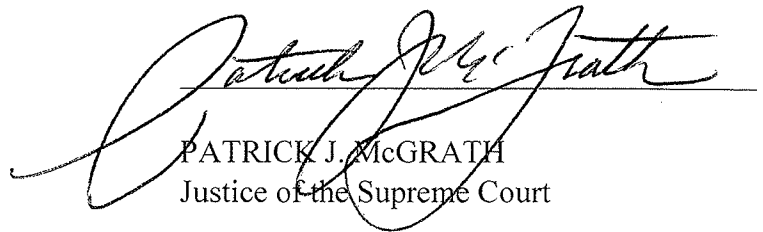 Patrick J McGrath
PATRICK J. McGRATH
Justice of the Supreme Court